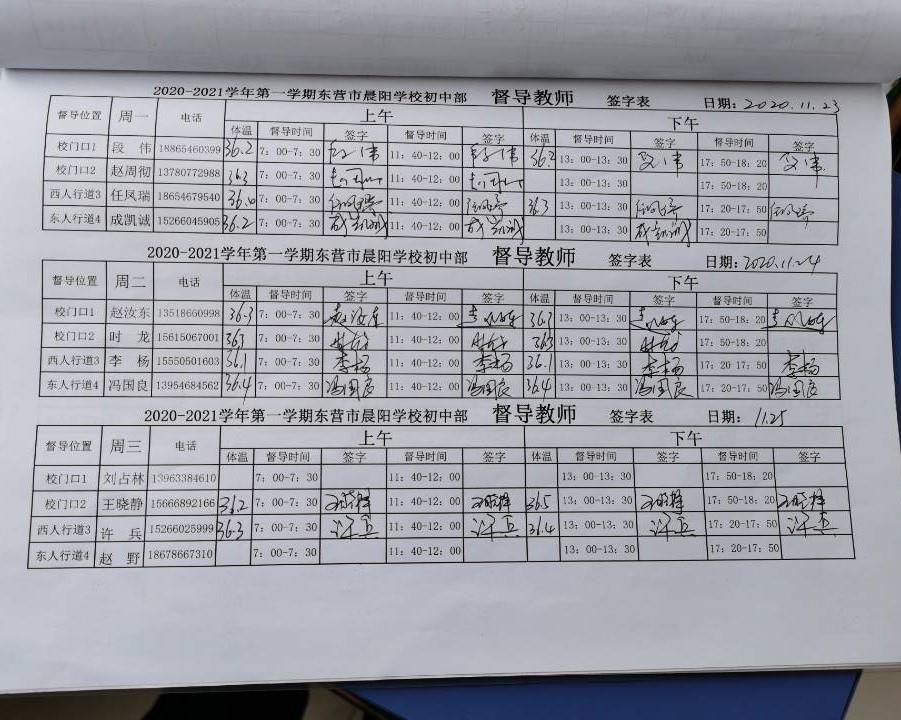 2020-2021学年第一学期东营市晨阳学校初中部 督导教师 签字表 日期：2020.11.23
督导位置 周一 电话 上午 下午
体温 督导时间 签字 督导时间 签字 体温 督导时间 签字 督导时间 签字
校门口1 段 伟 18865460399 36.2 7：00-7：30 段伟 11：40-12：00 段伟 36.2 13：00-13：30 段伟 17：50-18：20 段伟
校门口2 赵周彻 13780772988 36.3 7：00-7：30 11：40-12：00 13：00-13：30 17：50-18：20
西人行道3 任凤瑞 18654679540 36.0 7：00-7：30 任凤瑞 11：40-12：00 任凤瑞 36.3 13：00-13：30 任凤瑞 17：20-17：50 任凤瑞
东人行道4 成凯诚 15266045905 36.2 7：00-7：30 成凯诚 11：40-12：00 成凯诚 13：00-13：30 成凯诚 17：20-17：50
2020-2021学年第一学期东营市晨阳学校初中部 督导教师 签字表 日期：2020.11.24
督导位置 周二 电话 上午 下午
体温 督导时间 签字 督导时间 签字 体温 督导时间 签字 督导时间 签字
校门口1 赵汝东 13518660998 36.3 7：00-7：30 赵汝东 11：40-12：00 赵汝东 36.3 13：00-13：30 赵汝东 17：50-18：20 赵汝东
校门口2 时 龙 15615067001 7：00-7：30 时龙 11：40-12：00 时龙 13：00-13：30 时龙 17：50-18：20
西人行道3 李 杨 15550501603 36.1 7：00-7：30 李杨 11：40-12：00 李杨 36.1 13：00-13：30 李杨 17：20-17：50 李杨
东人行道4 冯国良 13954684562 36.4 7：00-7：30 冯国良 11：40-12：00 冯国良 36.4 13：00-13：30 冯国良 17：20-17：50 冯国良
2020-2021学年第一学期东营市晨阳学校初中部 督导教师 签字表 日期：11.25
督导位置 周三 电话 上午 下午
体温 督导时间 签字 督导时间 签字 体温 督导时间 签字 督导时间 签字
校门口1 刘占林 13963384610 7：00-7：30 11：40-12：00 13：00-13：30 17：50-18：20
校门口2 王晓静 15666892166 36.2 7：00-7：30 王晓静 11：40-12：00 王晓静 36.5 13：00-13：30 王晓静 17：50-18：20 王晓静
西人行道3 许 兵 15266025999 36.3 7：00-7：30 许兵 11：40-12：00 许兵 36.4 13：00-13：30 许兵 17：20-17：50 许兵
东人行道4 赵 野 18678667310 7：00-7：30 11：40-12：00 13：00-13：30 17：20-17：50